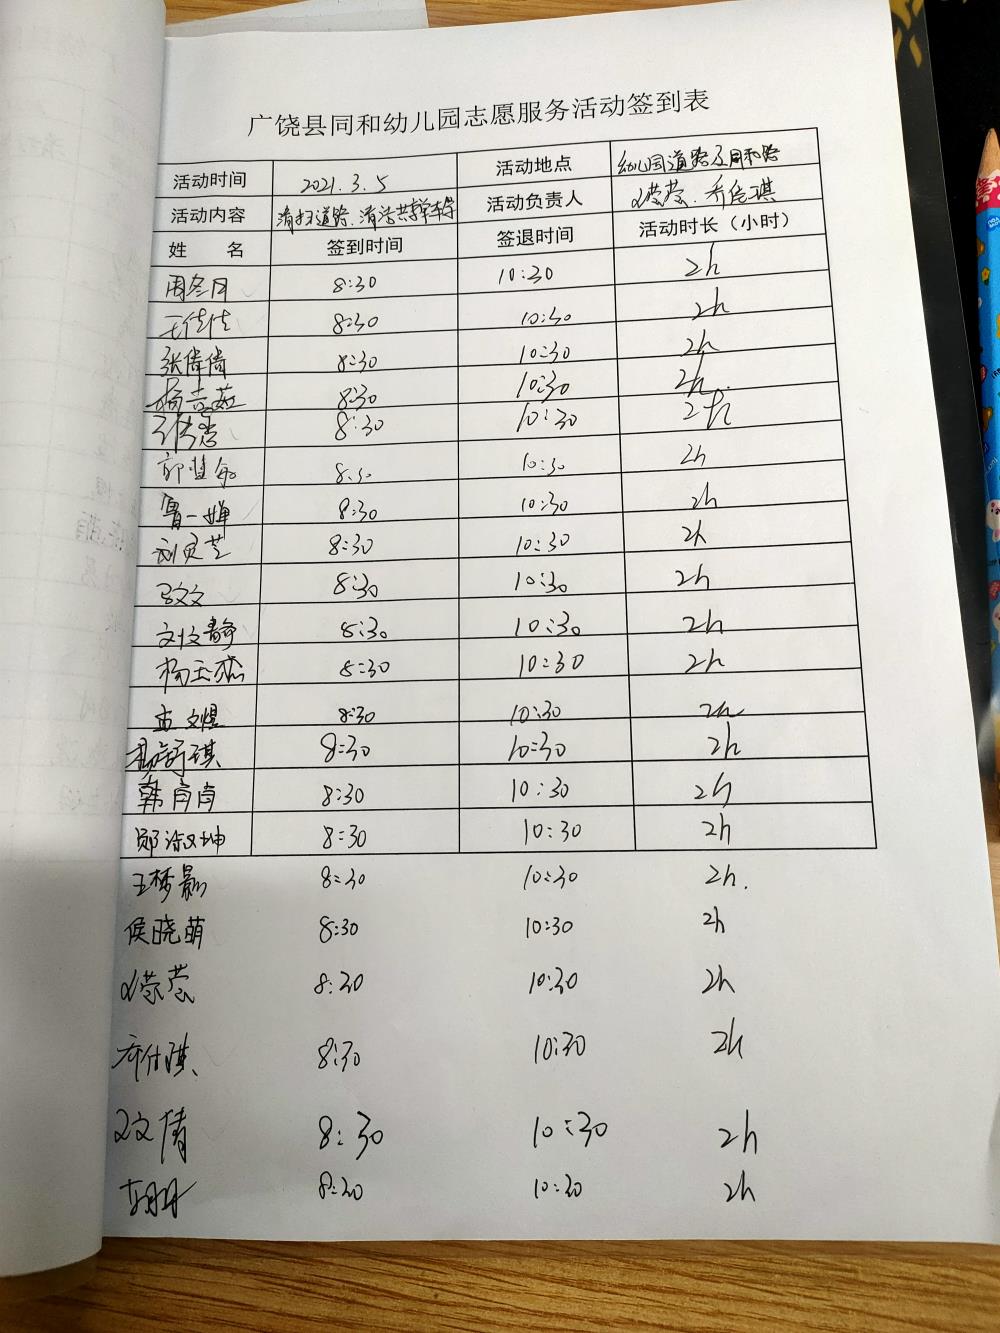 广饶县同和幼儿园志愿服务活动签到表
活动时间 2021.3.5 活动地点 幼儿园道路及同和路
活动内容 清扫道路、清洁共享单车等 活动负责人
姓 名 签到时间 签退时间 活动时长（小时）
周冬月 8:30 10:30 2h
王佳佳 8:30 10:30 2h
张倩倩 8:30 10:30 2h
8:30 10:30 2h.
8:30 10:30 2h
8:30 10:30 2h
鲁一婵 8:30 10:30 2h
刘灵芝 8:30 10:30 2h
8:30 10:30 2h
刘文静 8:30 10:30 2h
杨玉杰 8:30 10:30 2h
8:30 10:30 2h
杨舒琪 8:30 10:30 2h
韩肖肖 8:30 10:30 2h
郧淑坤 8:30 10:30 2h
王梦影 8:30 10:30 2h.
侯晓萌 8:30 10:30 2h
8:30 10:30 2h
8:30 10:30 2h
8:30 10:30 2h
8:30 10:30 2h